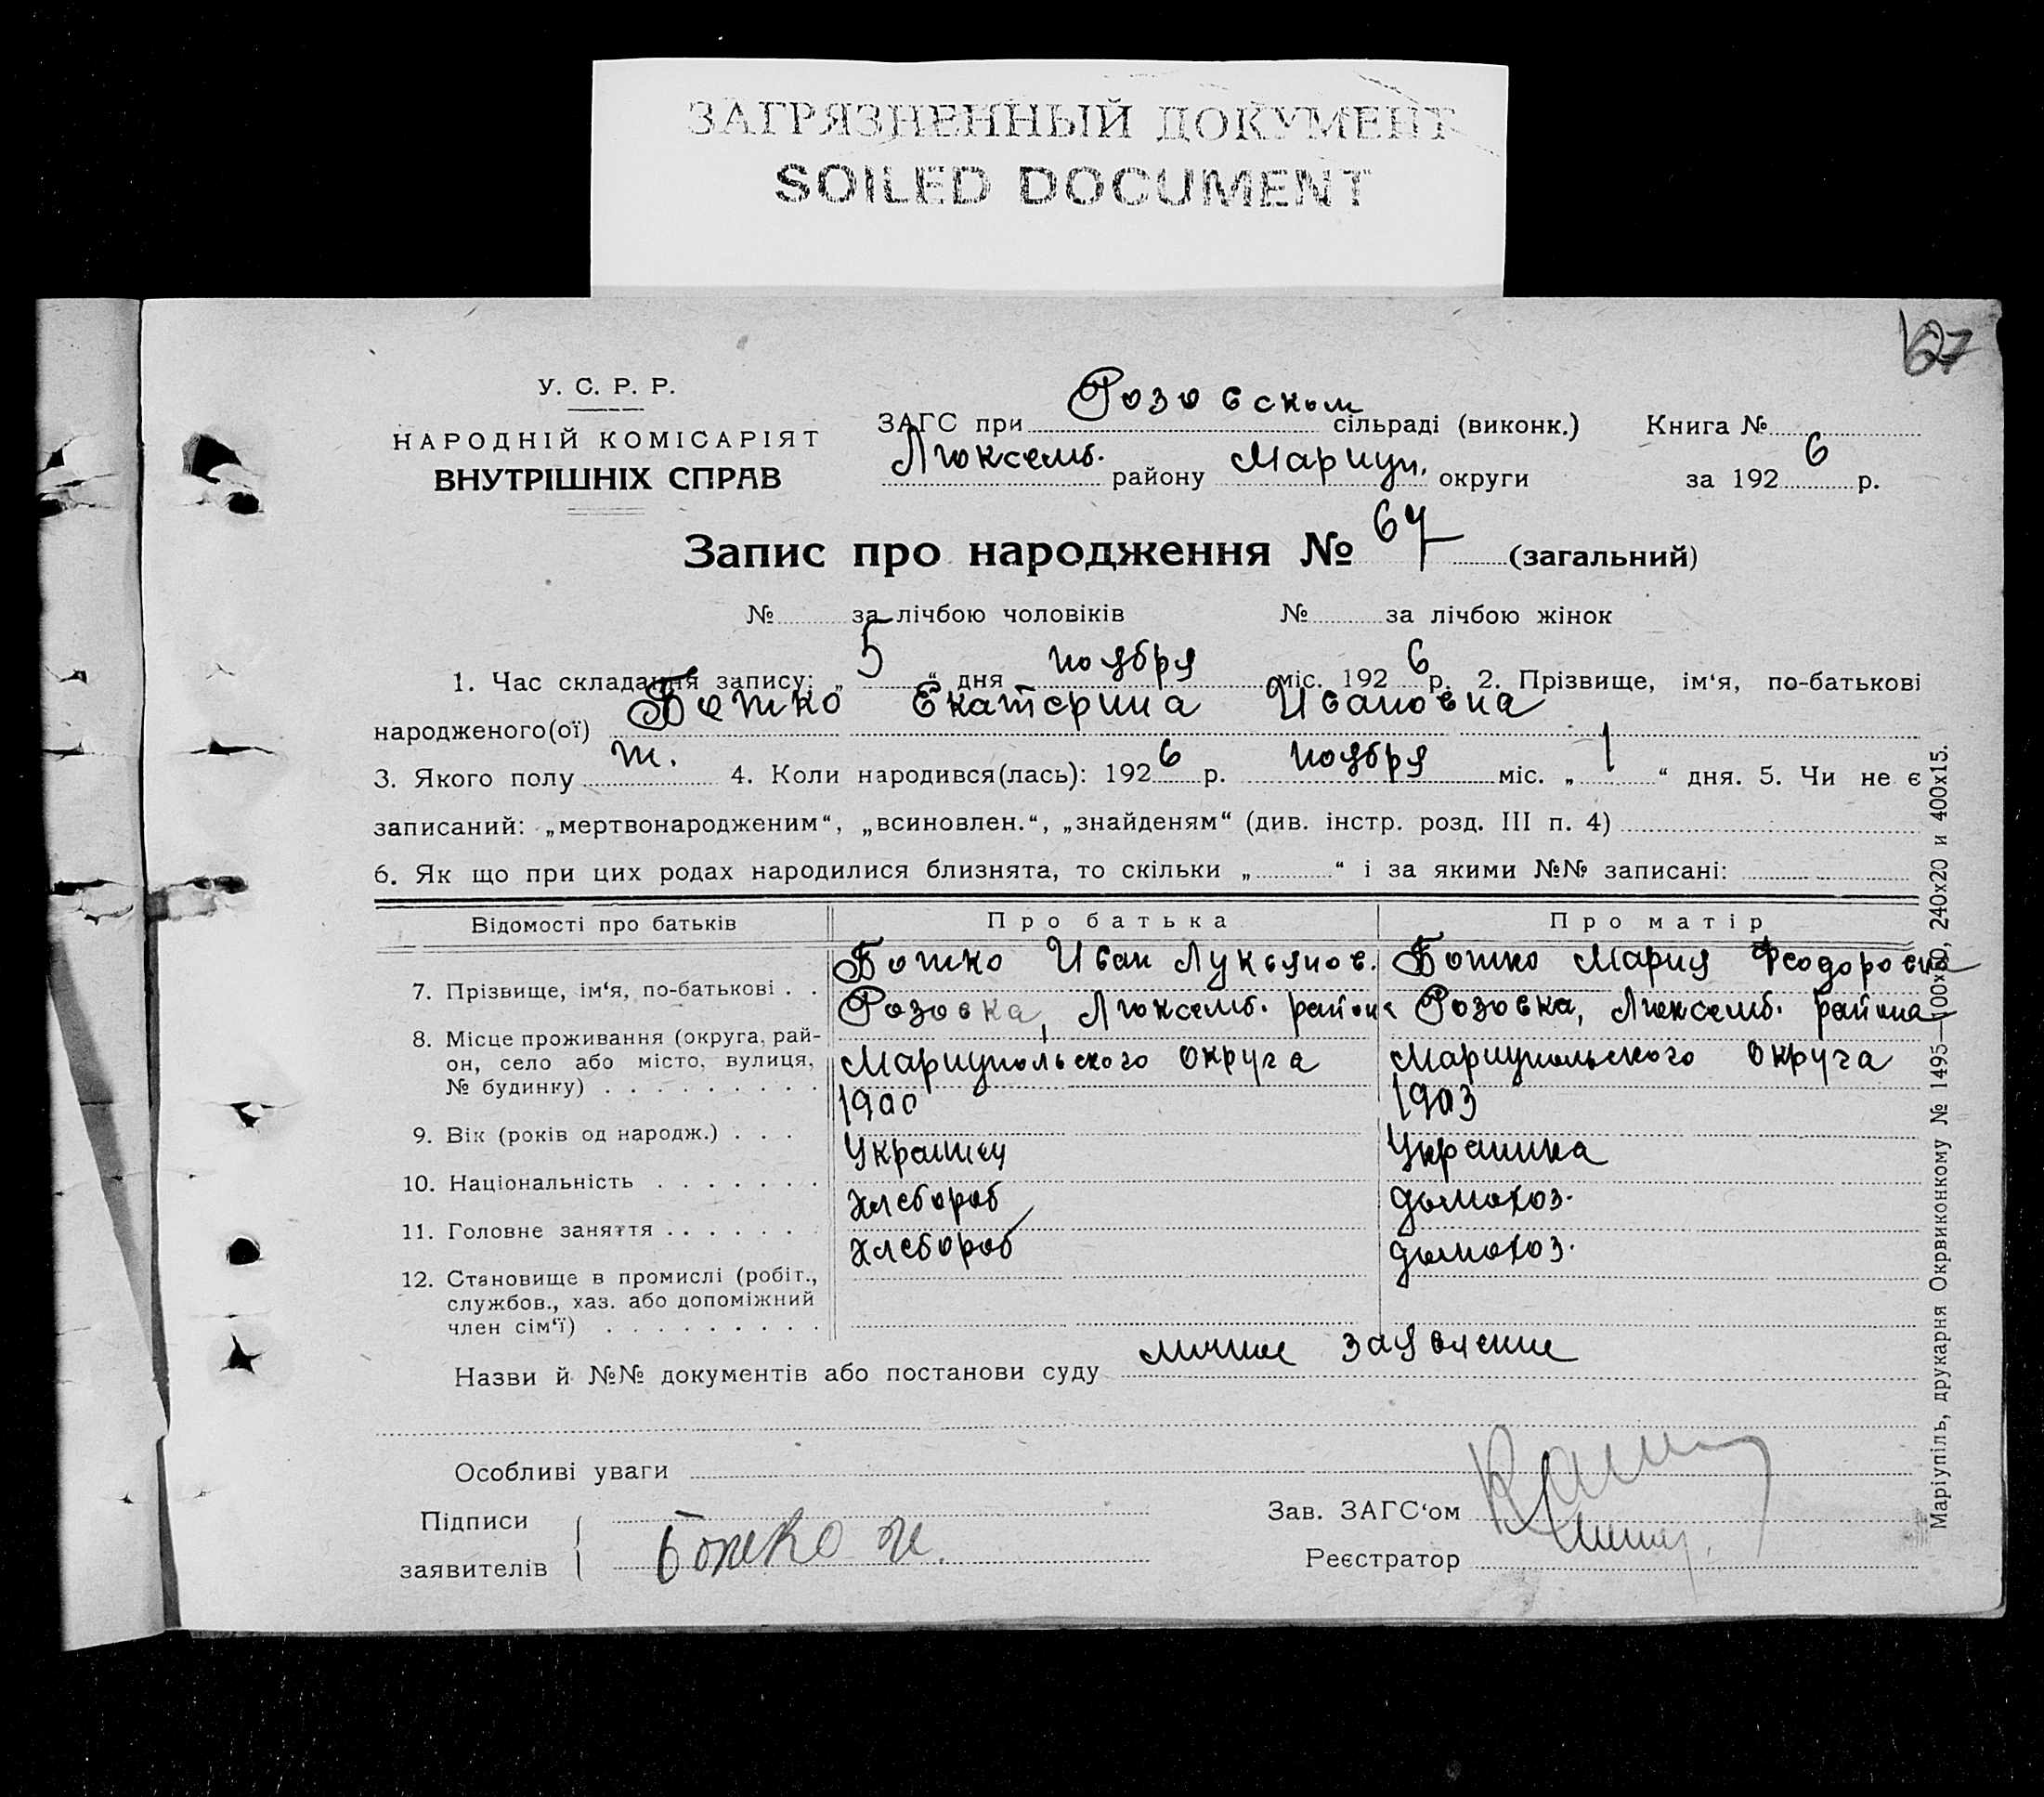 ЗАГРЯЗНЕННЫЙ ДОКУМЕНТ
SOILED DOCUMENT
У. С. Р. Р.
НАРОДНІЙ КОМІСАРІЯТ
ВНУТРІШНІХ СПРАВ
ЗАГС при Розовском сільраді (виконк.) Книга №
Люксемб. району Мариуп. округи за 1926 р.
Запис про народження № 67 (загальний)
№ за лічбою чоловіків № за лічбою жінок
1. Час складання запису: „5“ дня ноября міс. 1926 р. 2. Прізвище, ім‘я, по-батькові
народженого(ої) Божко Екатерина Ивановна
3. Якого полу ж. 4. Коли народився(лась): 1926 р. ноября міс. „1“ дня. 5. Чи не є
записаний: „мертвонародженим“, „всиновлен.“, „знайденям“ (див. інстр. розд. III п. 4)
6. Як що при цих родах народилися близнята, то скільки „ “ і за якими №№ записані:
Відомості про батьків Про батька Про матір
7. Прізвище, ім‘я, по-батькові . . Божко Иван Лукьянов. Божко Мария Феодоровна
8. Місце проживання (округа, рай-
он, село або місто, вулиця,
№ будинку) . . . . . . . . .
Розовка, Люксемб. района Розовка, Люксемб. района
Мариупольского округа Мариупольского округа
9. Вік (років од народж.) . . . 1900 1903
10. Національність . . . . . . . Украинец Украинка
11. Головне заняття . . . . . . . Хлебороб домохоз.
12. Становище в промислі (робіт.,
службов., хаз. або допоміжний
член сім‘ї) . . . . . . . . .
Хлебороб домохоз.
Назви й №№ документів або постанови суду личное заявление
Особливі уваги
Підписи
заявителів Божко И.
Зав. ЗАГС‘ом
Реєстратор
Маріупіль, друкарня Окрвиконкому № 1495—100х80, 240х20 и 400х15.